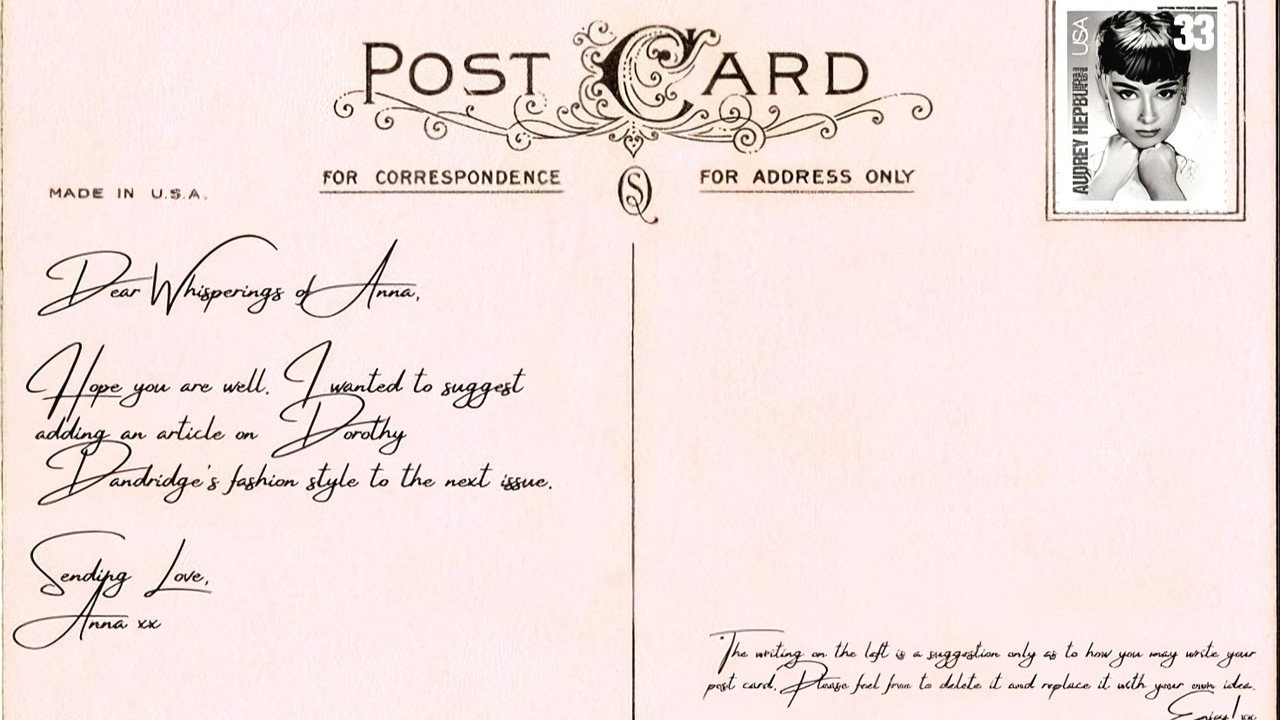 POST CARD
FOR CORRESPONDENCE
FOR ADDRESS ONLY
MADE IN U.S.A.
USA
33
AUDREY HEPBURN
Dear Whisperings of Anna,
Hope you are well. I wanted to suggest
adding an article on Dorothy
Dandridge's fashion style to the next issue.
Sending Love,
Anna xx
The writing on the left is a suggestion only as to how you may write your
post card. Please feel free to delete it and replace it with your own idea.
Enjoy! xx